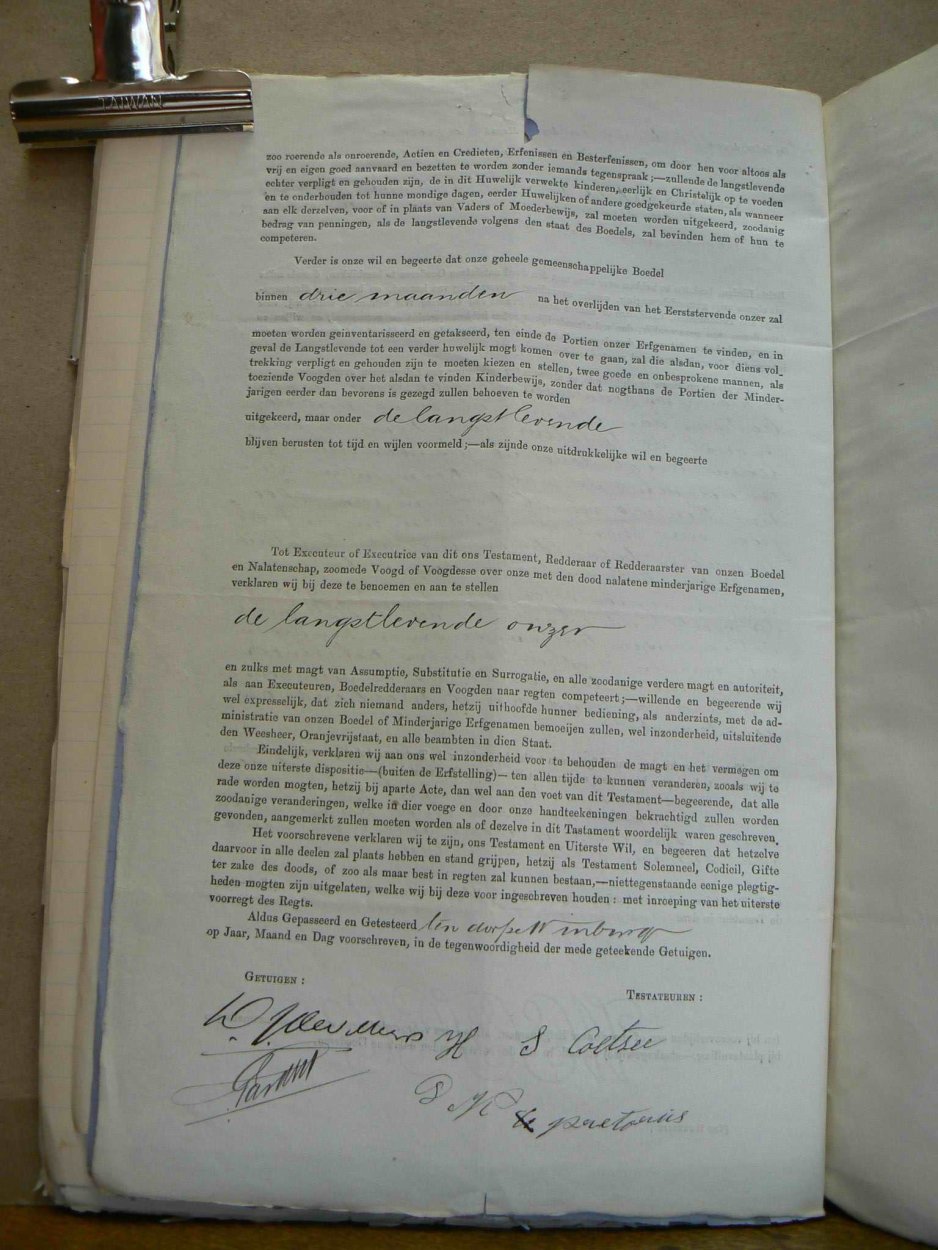 TAIWAN
zoo roerende als onroerende, Actien en Credieten, Erfenissen en Besterfenissen, om door hen voor altoos als
vrij en eigen goed aanvaard en bezetten te worden zonder iemands tegenspraak;—zullende de langstlevende
echter verpligt en gehouden zijn, de in dit Huwelijk verwekte kinderen, eerlijk en Christelijk op te voeden
en te onderhouden tot hunne mondige dagen, eerder Huwelijken of andere goedgekeurde staten, als wanneer
aan elk derzelven, voor of in plaats van Vaders of Moederbewijs, zal moeten worden uitgekeerd, zoodanig
bedrag van penningen, als de langstlevende volgens den staat des Boedels, zal bevinden hem of hun te
competeren.
Verder is onze wil en begeerte dat onze geheele gemeenschappelijke Boedel
binnen drie maanden na het overlijden van het Eerststervende onzer zal
moeten worden geinventarisseerd en getakseerd, ten einde de Portien onzer Erfgenamen te vinden, en in
geval de Langstlevende tot een verder huwelijk mogt komen over te gaan, zal die alsdan, voor diens vol
trekking verpligt en gehouden zijn te moeten kiezen en stellen, twee goede en onbesprokene mannen, als
toeziende Voogden over het alsdan te vinden Kinderbewijs, zonder dat nogthans de Portien der Minder-
jarigen eerder dan bevorens is gezegd zullen behoeven te worden
uitgekeerd, maar onder de langstlevende
blijven berusten tot tijd en wijlen voormeld;—als zijnde onze uitdrukkelijke wil en begeerte
Tot Executeur of Executrice van dit ons Testament, Redderaar of Redderaarster van onzen Boedel
en Nalatenschap, zoomede Voogd of Voogdesse over onze met den dood nalatene minderjarige Erfgenamen,
verklaren wij bij deze te benoemen en aan te stellen
de langstlevende onzer
en zulks met magt van Assumptie, Substitutie en Surrogatie, en alle zoodanige verdere magt en autoriteit,
als aan Executeuren, Boedelredderaars en Voogden naar regten competeert;—willende en begeerende wij
wel expresselijk, dat zich niemand anders, hetzij uithoofde hunner bediening, als anderzints, met de ad-
ministratie van onzen Boedel of Minderjarige Erfgenamen bemoeijen zullen, wel inzonderheid, uitsluitende
den Weesheer, Oranjevrijstaat, en alle beambten in dien Staat.
Eindelijk, verklaren wij aan ons wel inzonderheid voor te behouden de magt en het vermogen om
deze onze uiterste dispositie—(buiten de Erfstelling)—ten allen tijde te kunnen veranderen, zooals wij te
rade worden mogten, hetzij bij aparte Acte, dan wel aan den voet van dit Testament—begeerende, dat alle
zoodanige veranderingen, welke in dier voege en door onze handteekeningen bekrachtigd zullen worden
gevonden, aangemerkt zullen moeten worden als of dezelve in dit Tastament woordelijk waren geschreven.
Het voorschrevene verklaren wij te zijn, ons Testament en Uiterste Wil, en begeeren dat hetzelve
daarvoor in alle deelen zal plaats hebben en stand grijpen, hetzij als Testament Solemneel, Codicil, Gifte
ter zake des doods, of zoo als maar best in regten zal kunnen bestaan,—niettegenstaande eenige plegtig-
heden mogten zijn uitgelaten, welke wij bij deze voor ingeschreven houden: met inroeping van het uiterste
voorregt des Regts.
Aldus Gepasseerd en Getesteerd ten dorpe Winburg
op Jaar, Maand en Dag voorschreven, in de tegenwoordigheid der mede geteekende Getuigen.
GETUIGEN:
TESTATEUREN:
H S Coetsee
S M pretorius